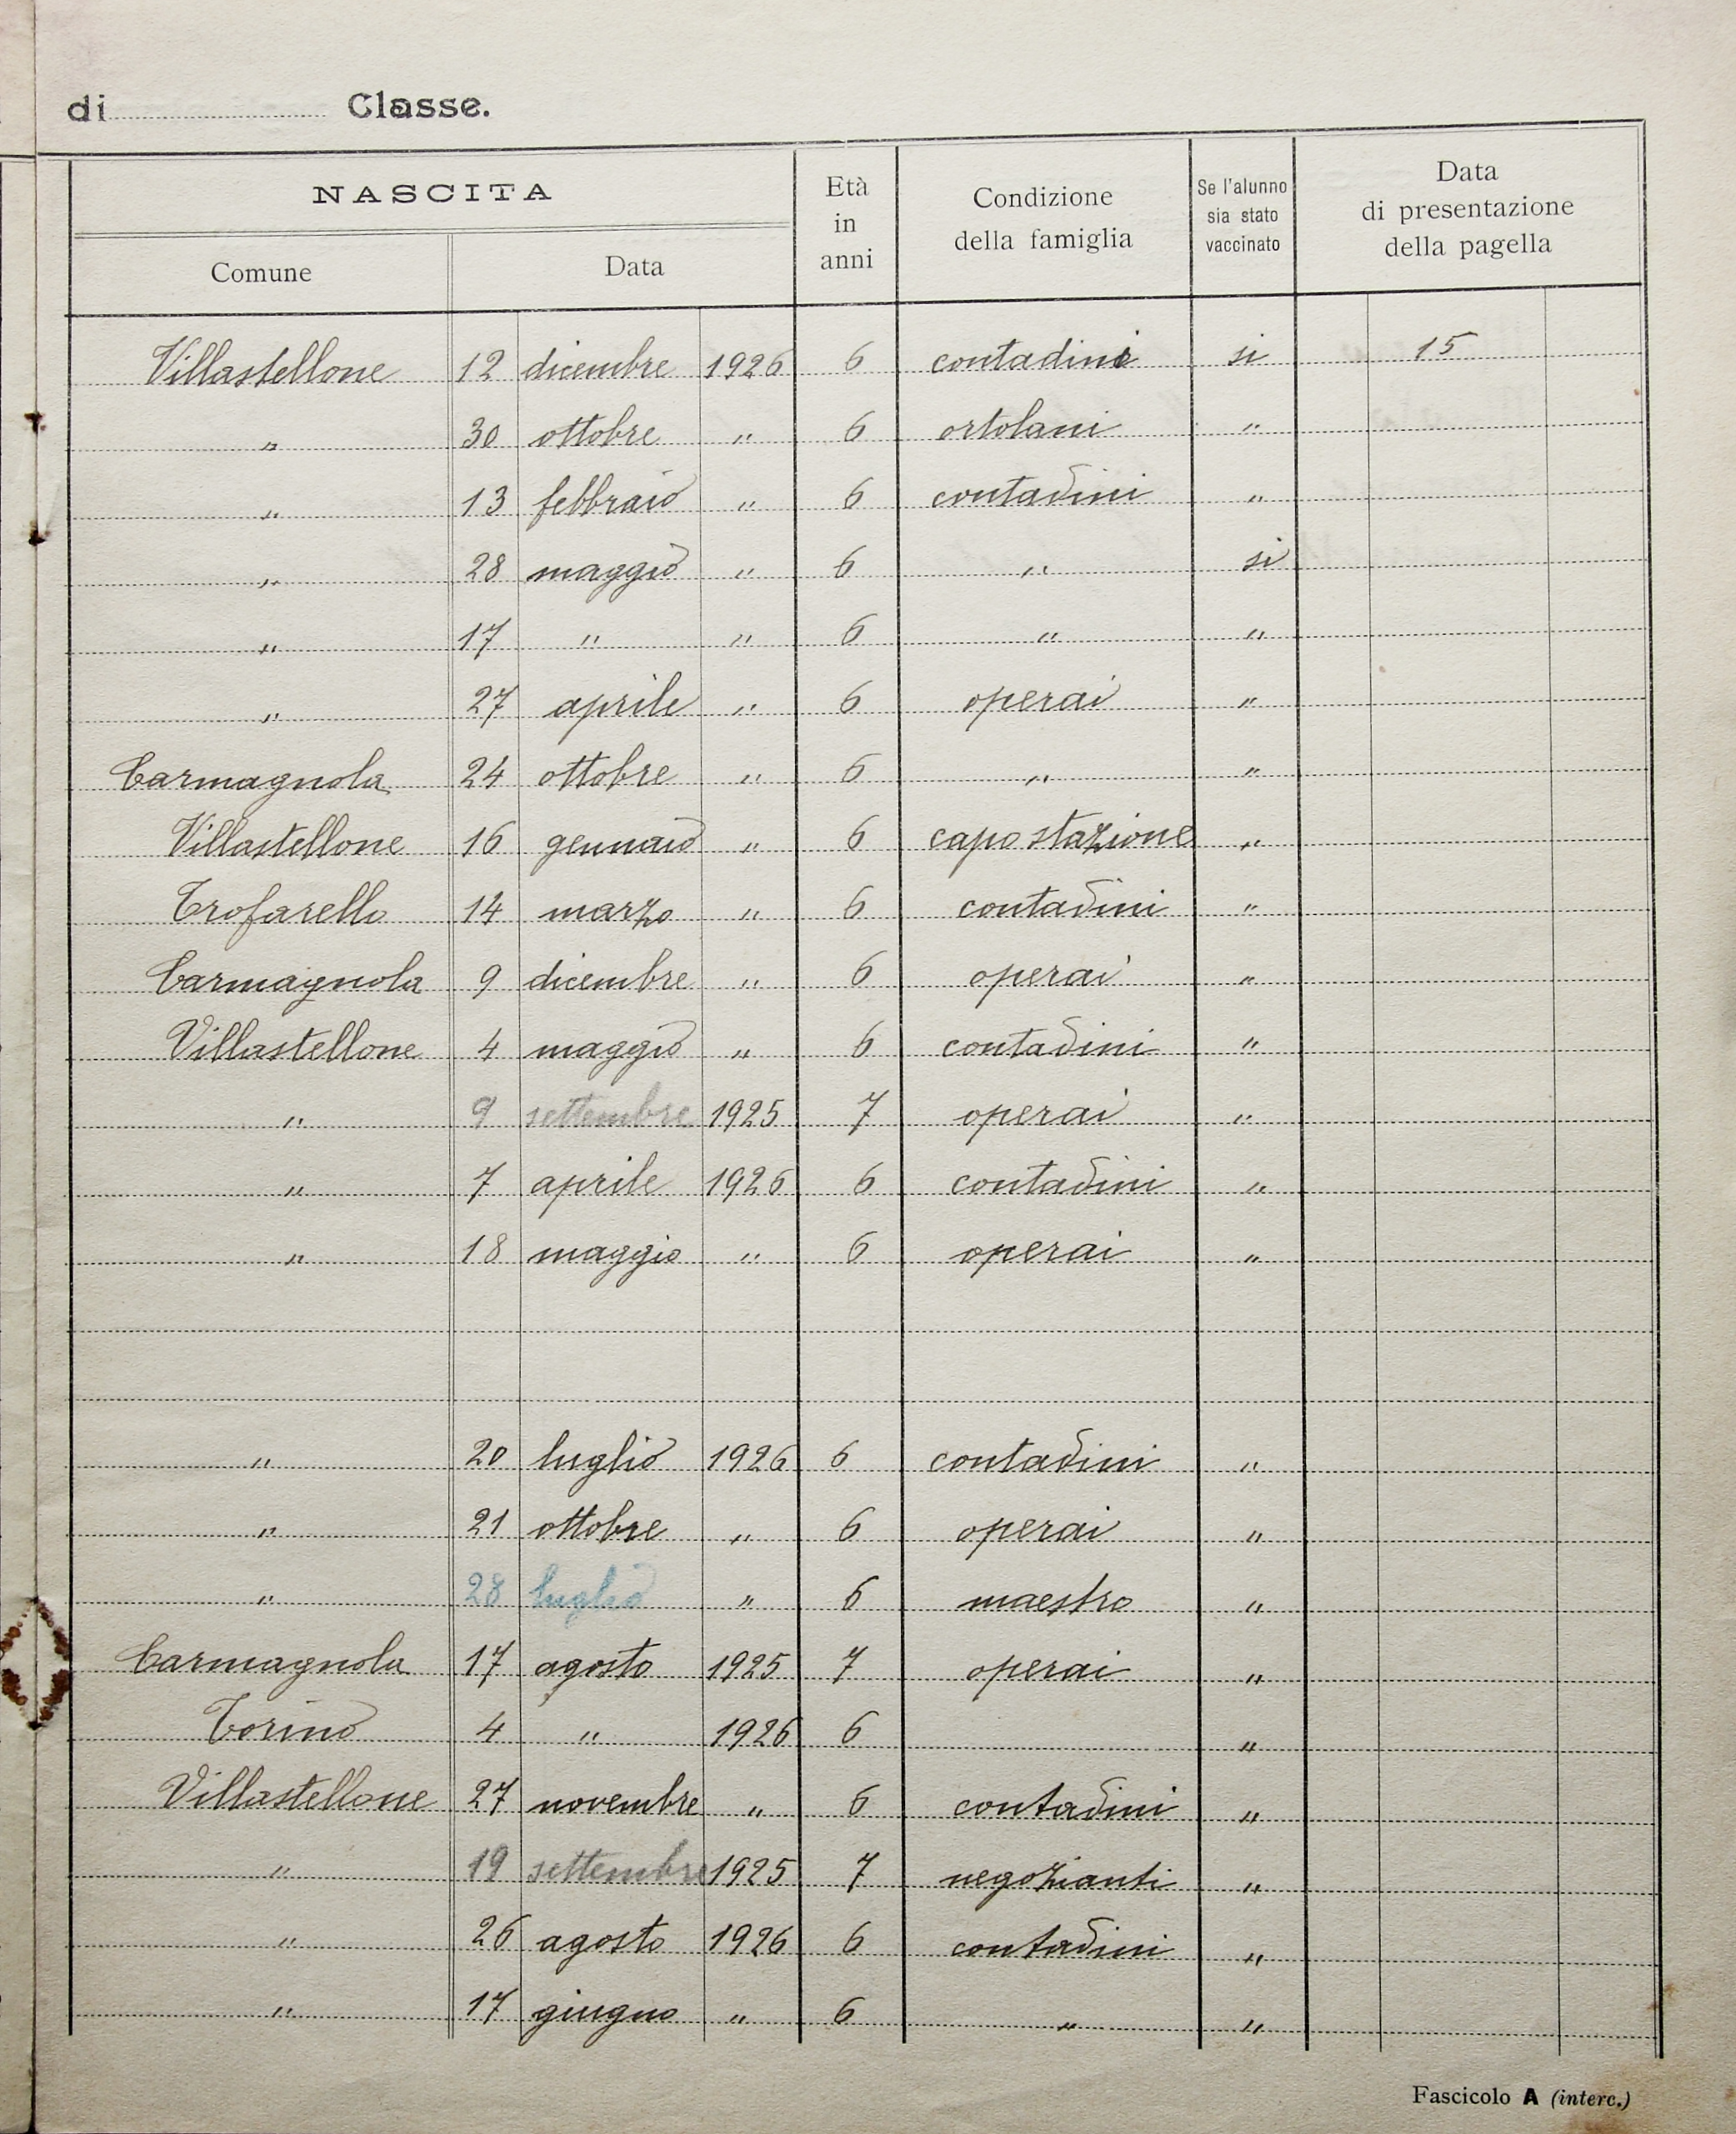 di Classe.
NASCITA
Comune Data
Età in anni
Condizione della famiglia
Se l'alunno sia stato vaccinato
Data di presentazione della pagella
Villastellone 12 dicembre 1926 6 contadini si 15
" 30 ottobre " 6 ortolani "
" 13 febbraio " 6 contadini "
" 28 maggio " 6 " si
" 17 " " 6 " "
" 27 aprile " 6 operai "
Carmagnola 24 ottobre " 6 " "
Villastellone 16 gennaio " 6 capo stazione "
Trofarello 14 marzo " 6 contadini "
Carmagnola 9 dicembre " 6 operai "
Villastellone 4 maggio " 6 contadini "
" 9 settembre 1925 7 operai "
" 7 aprile 1926 6 contadini "
" 18 maggio " 6 operai "
" 20 luglio 1926 6 contadini "
" 21 ottobre " 6 operai "
" 28 luglio " 6 maestro "
Carmagnola 17 agosto 1925 7 operai "
Torino 4 " 1926 6 "
Villastellone 27 novembre " 6 contadini "
" 19 settembre 1925 7 negozianti "
" 26 agosto 1926 6 contadini "
" 17 giugno " 6 " "
Fascicolo A (interc.)